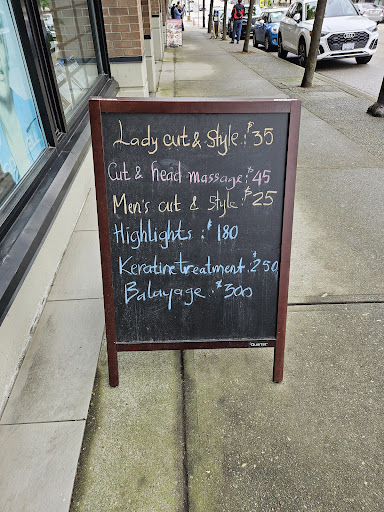 Lady cut & style : $35
Cut & head massage : $45
Men's cut & style : $25
Highlights : $180
Keratine treatment : $250
Balayage : $300
"Quartet"